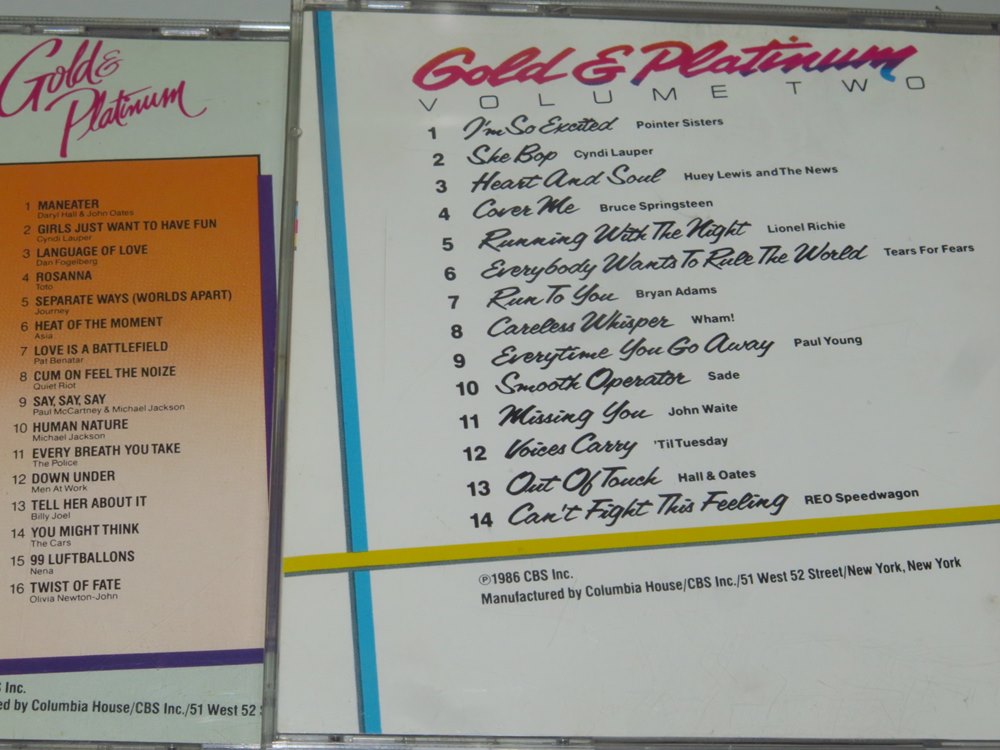 Gold &
Platinum
1 MANEATER
Daryl Hall & John Oates
2 GIRLS JUST WANT TO HAVE FUN
Cyndi Lauper
3 LANGUAGE OF LOVE
Dan Fogelberg
4 ROSANNA
Toto
5 SEPARATE WAYS (WORLDS APART)
Journey
6 HEAT OF THE MOMENT
Asia
7 LOVE IS A BATTLEFIELD
Pat Benatar
8 CUM ON FEEL THE NOIZE
Quiet Riot
9 SAY, SAY, SAY
Paul McCartney & Michael Jackson
10 HUMAN NATURE
Michael Jackson
11 EVERY BREATH YOU TAKE
The Police
12 DOWN UNDER
Men At Work
13 TELL HER ABOUT IT
Billy Joel
14 YOU MIGHT THINK
The Cars
15 99 LUFTBALLONS
Nena
16 TWIST OF FATE
Olivia Newton-John
Inc.
ed by Columbia House/CBS Inc./51 West 52
Gold & Platinum
VOLUME TWO
1 I'm So Excited Pointer Sisters
2 She Bop Cyndi Lauper
3 Heart And Soul Huey Lewis and The News
4 Cover Me Bruce Springsteen
5 Running With The Night Lionel Richie
6 Everybody Wants To Rule The World Tears For Fears
7 Run To You Bryan Adams
8 Careless Whisper Wham!
9 Everytime You Go Away Paul Young
10 Smooth Operator Sade
11 Missing You John Waite
12 Voices Carry 'Til Tuesday
13 Out Of Touch Hall & Oates
14 Can't Fight This Feeling REO Speedwagon
℗1986 CBS Inc.
Manufactured by Columbia House/CBS Inc./51 West 52 Street/New York, New York